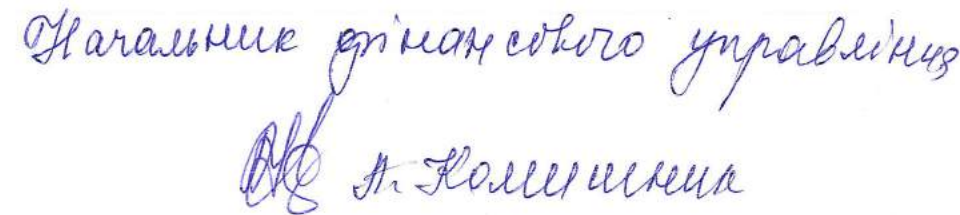 Начальник фінансового управління
А. Комишник